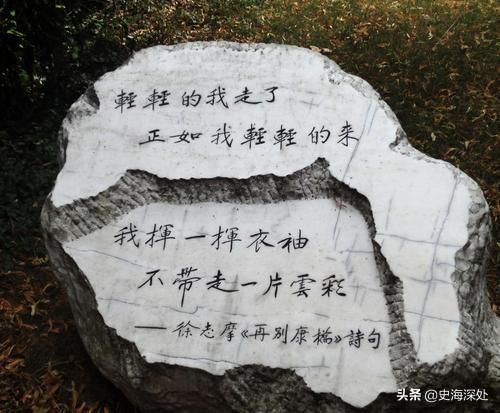 輕輕的我走了
正如我輕輕的來
我揮一揮衣袖
不帶走一片雲彩
——徐志摩《再別康橋》詩句
头条 @史海深处